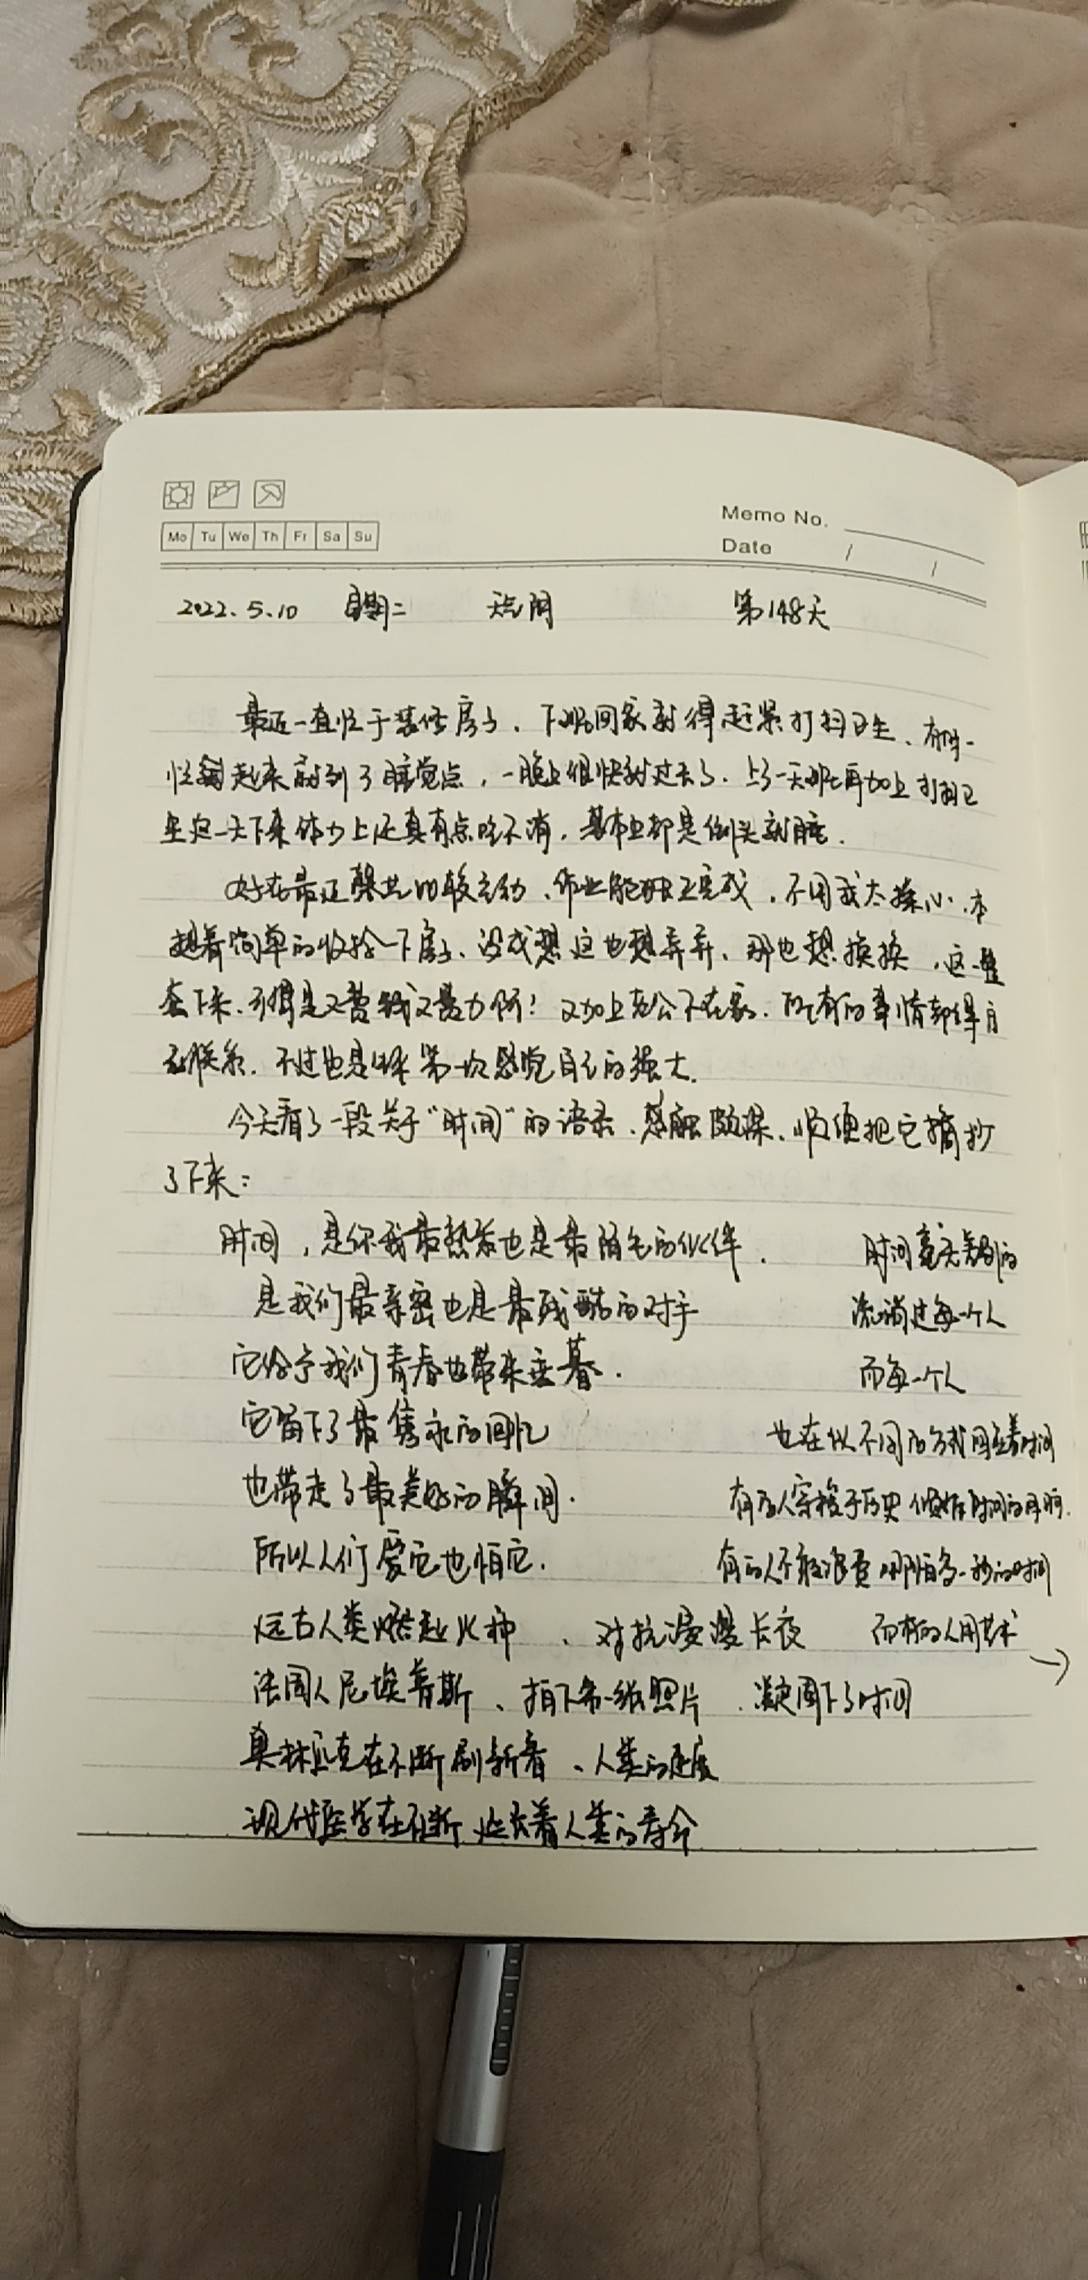 Mo Tu We Th Fr Sa Su
Memo No.
Date / /
2022.5.10 星期二 天气阴 第148天
最近一直忙于装修房子，下班回家就得赶紧打扫卫生，有时一
忙起来就到了睡觉点，一晚上很快就过去了，上了一天班再加上打扫卫
生这一天下来体力上还真有点吃不消，基本上都是倒头就睡．
好在最近比较主动，作业能完成，不用我太操心．本
想着简单的收拾一下房子，没成想这也想弄弄，那也想换换，这一整
套下来，可得是又费钱又费力啊！又加上老公不在家，所有的事情都得自
己联系，不过也是第一次感觉自己的强大．
今天看了一段关于“时间”的语录，感触颇深，顺便把它摘抄
了下来：
时间，是你我最熟悉也是最陌生的伙伴．
是我们最亲密也是最残酷的对手
它给予我们青春也带来垂暮．
它留下了最隽永的回忆
也带走了最美好的瞬间．
所以人们爱它也怕它．
远古人类燃起火种，对抗漫漫长夜
法国人尼埃普斯，拍下第一张照片，凝固下了时间
奥林匹克在不断刷新着，人类的速度
现代医学在不断延长着人类的寿命
时间毫无差别的
流淌过每一个人
而每一个人
也在以不同的方式回应着时间
有的人穿梭于历史 修好时间的
有的人不敢浪费 哪怕多一秒的时间
而有的人用艺术 →